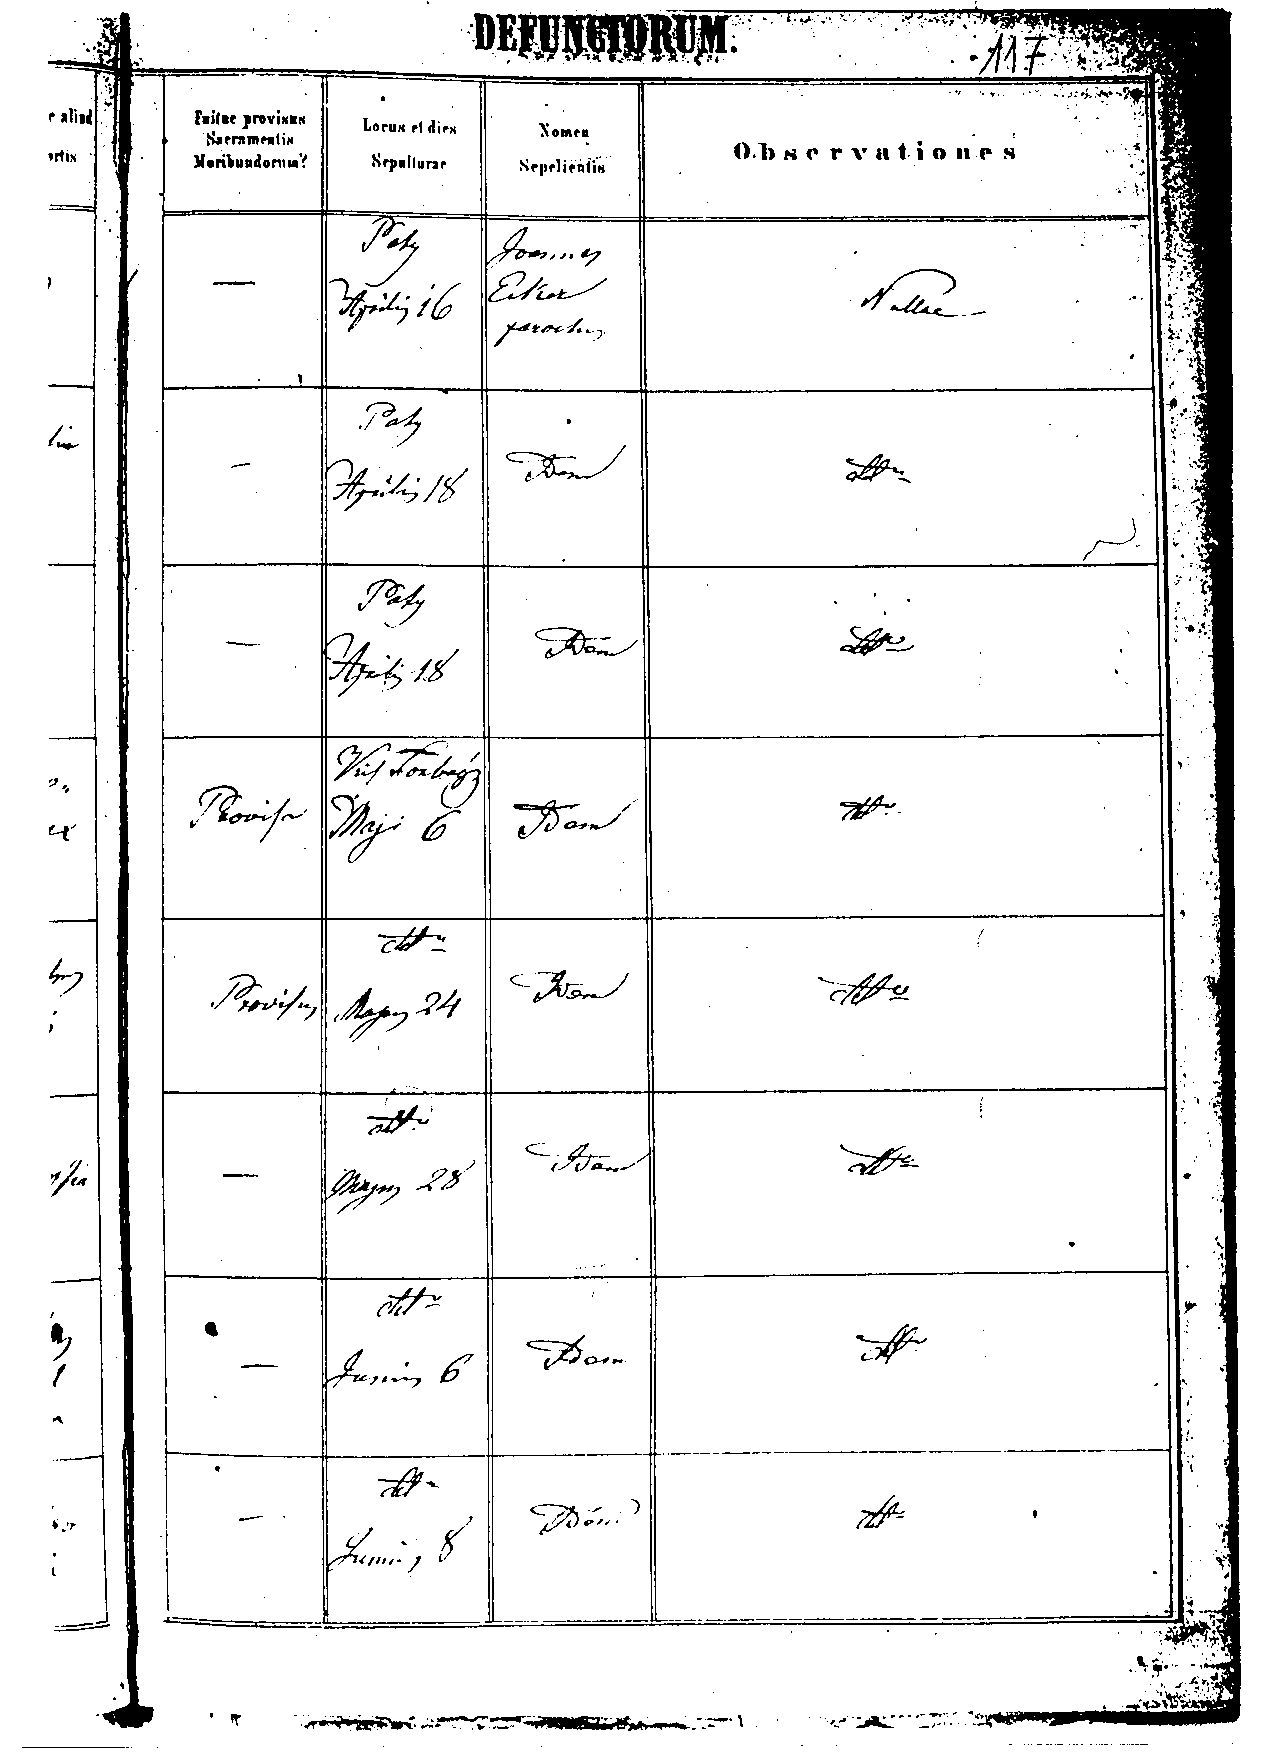 DEFUNCTORUM.
117
e aliud
ortis
Fuitne provisus
Sacramentis
Moribundorum?
Locus et dies
Sepulturae
Nomen
Sepelientis
Observationes
—
Paty
Aprilis 16
Joannes
Ecker
parochus
Nullae
—
Paty
Aprilis 18
Idem
dtto
—
Paty
Aprilis 18
Idem
dtto
Provisa
Torbágy
Maji 6
Idem
dtto
Provisus
dtto
Majus 24
Idem
dtto
—
dtto
Majus 28
Idem
dtto
—
dtto
Junius 6
Idem
dtto
—
dtto
Junius 8
Idem
dtto